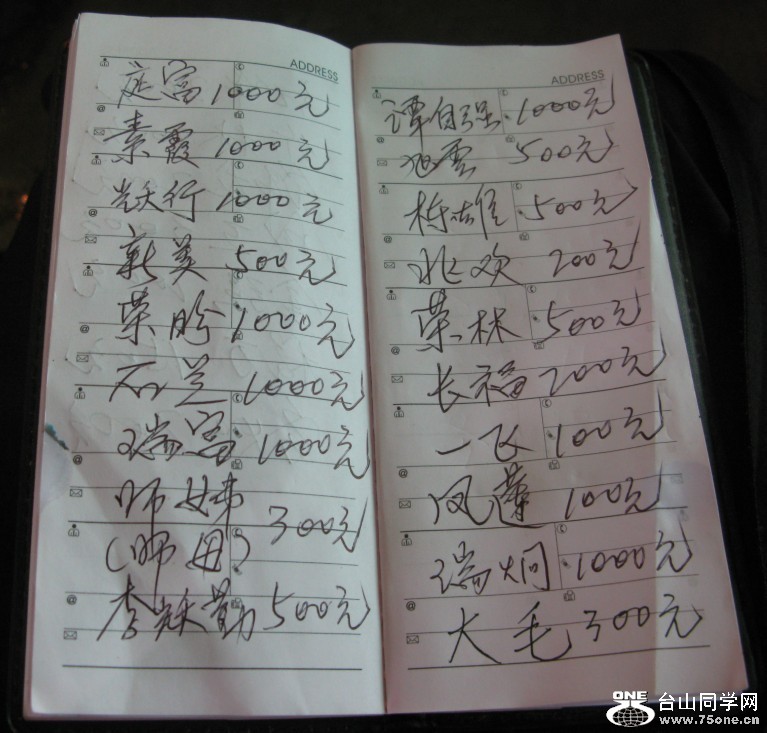 ADDRESS
定富 1000元
素霞 1000元
1000元
新美 500元
荣盼 1000元
石兰 1000元
瑞富 1000元
师娣
(师母) 300元
李 勤 500元
ADDRESS
谭自强 1000元
旭云 500元
栋雄 500元
兆欢 200元
荣林 500元
长福 200元
一飞 100元
凤莲 100元
瑞炯 1000元
大毛 300元
ONE 台山同学网
www.75one.cn